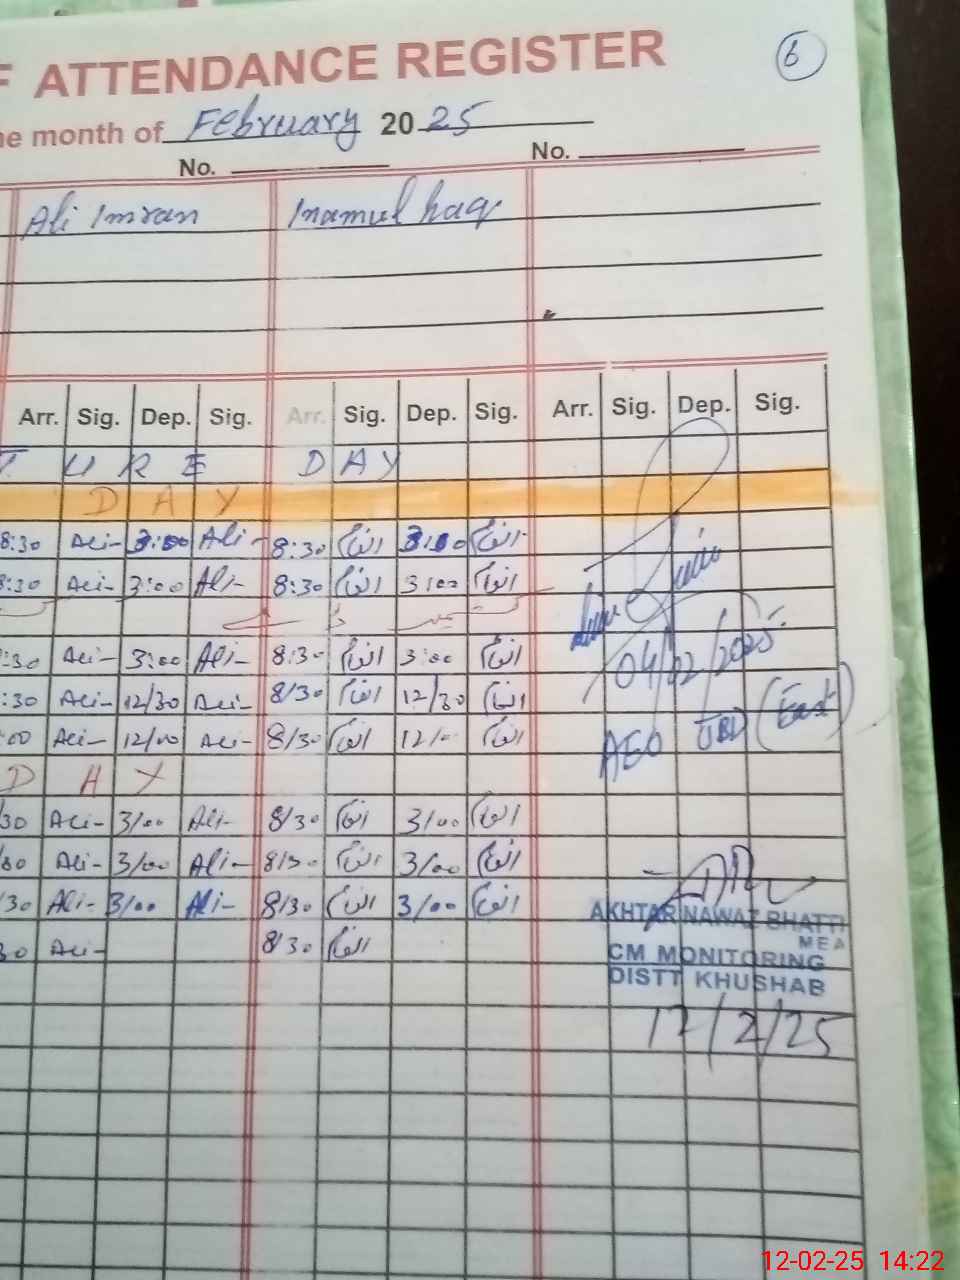 F ATTENDANCE REGISTER 6
he month of February 20 25
No. No.
Ali Imran Inamul haq
Arr. Sig. Dep. Sig. Arr. Sig. Dep. Sig. Arr. Sig. Dep. Sig.
T U R E D A Y
D A Y
8:30 Ali 3:00 Ali 8:30 انعام 3:00 انعام
8:30 Ali 3:00 Ali 8:30 انعام 3:00 انعام
:30 Ali 3:00 Ali 8:30 انعام 3:00 انعام
04/02/2025
:30 Ali 12/30 Ali 8/30 انعام 12/30 انعام
:00 Ali 12/00 Ali 8/30 انعام 12/00 انعام
AEO JBD (East)
D A Y
30 Ali 3/00 Ali 8/30 انعام 3/00 انعام
30 Ali 3/00 Ali 8/30 انعام 3/00 انعام
/30 Ali 3/00 Ali 8/30 انعام 3/00 انعام
AKHTAR NAWAZ BHATTI
MEA
30 Ali 8/30 انعام
CM MONITORING
DISTT KHUSHAB
12/2/25
12-02-25 14:22